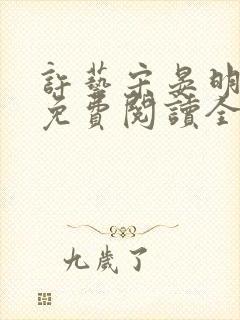 許藝宋晏明
免費閱讀全
九歲了